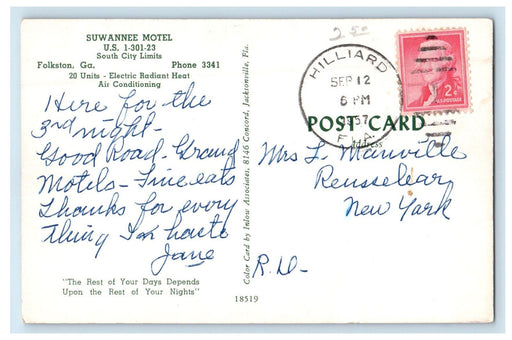 SUWANNEE MOTEL
U.S. 1-301-23
South City Limits
Folkston, Ga. Phone 3341
20 Units - Electric Radiant Heat
Air Conditioning
Here for the
3rd night-
Good Road-Grand
Motels-Fine eats
Thanks for every
thing In haste
Jane
"The Rest of Your Days Depends
Upon the Rest of Your Nights"
Color Card by Inlow Associates, 8146 Concord, Jacksonville, Fla.
18519
2.50
HILLIARD
SEP 12
6 PM
1957
FLA.
2¢
U.S. POSTAGE
POST CARD
Address
Mrs L. Manville
Rensselaer
New York
R.D-